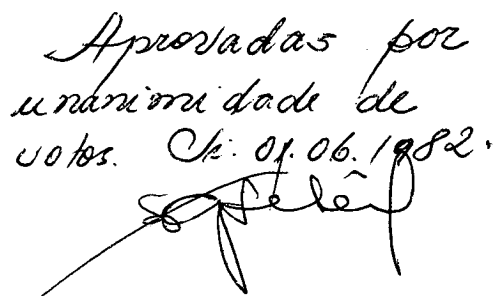 Aprovadas por
unanimidade de
votos. 01.06.1982.